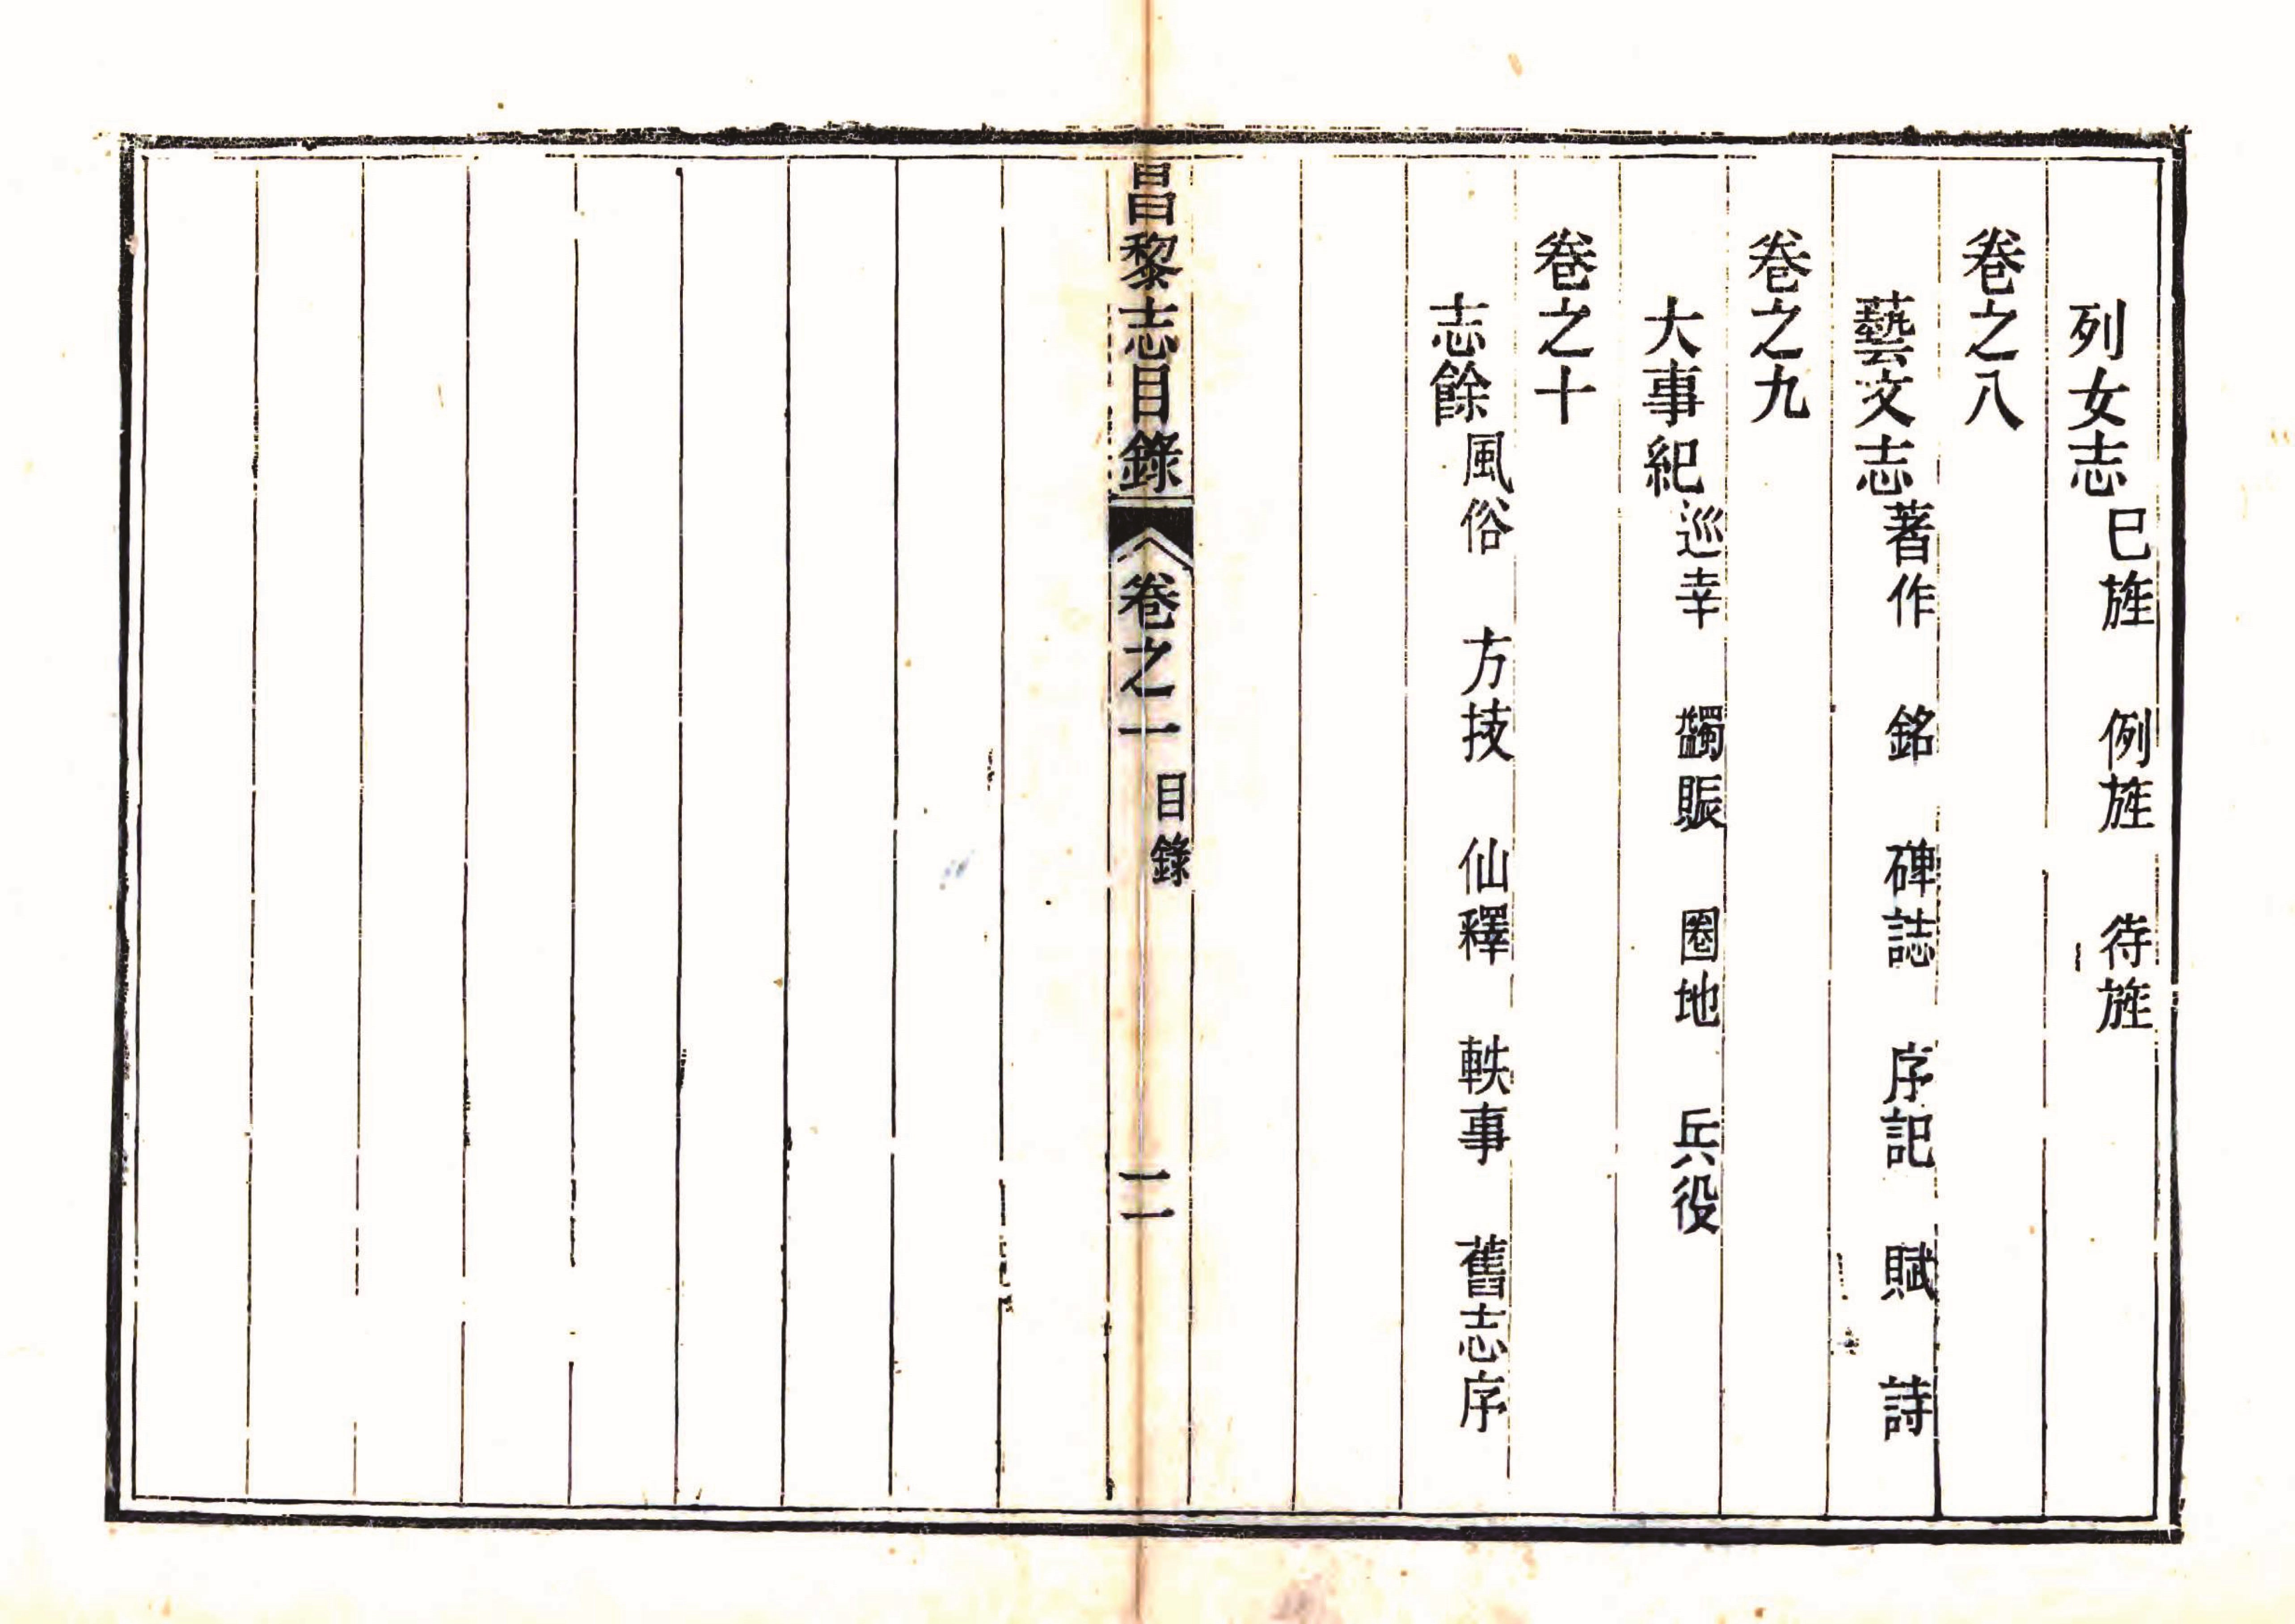 列女志 已旌 例旌 待旌
卷之八
藝文志 著作 銘 碑誌 序記 賦 詩
卷之九
大事紀 巡幸 蠲賑 圈地 兵役
卷之十
志餘 風俗 方技 仙釋 軼事 舊志序
昌黎志目錄 卷之一 目錄 二